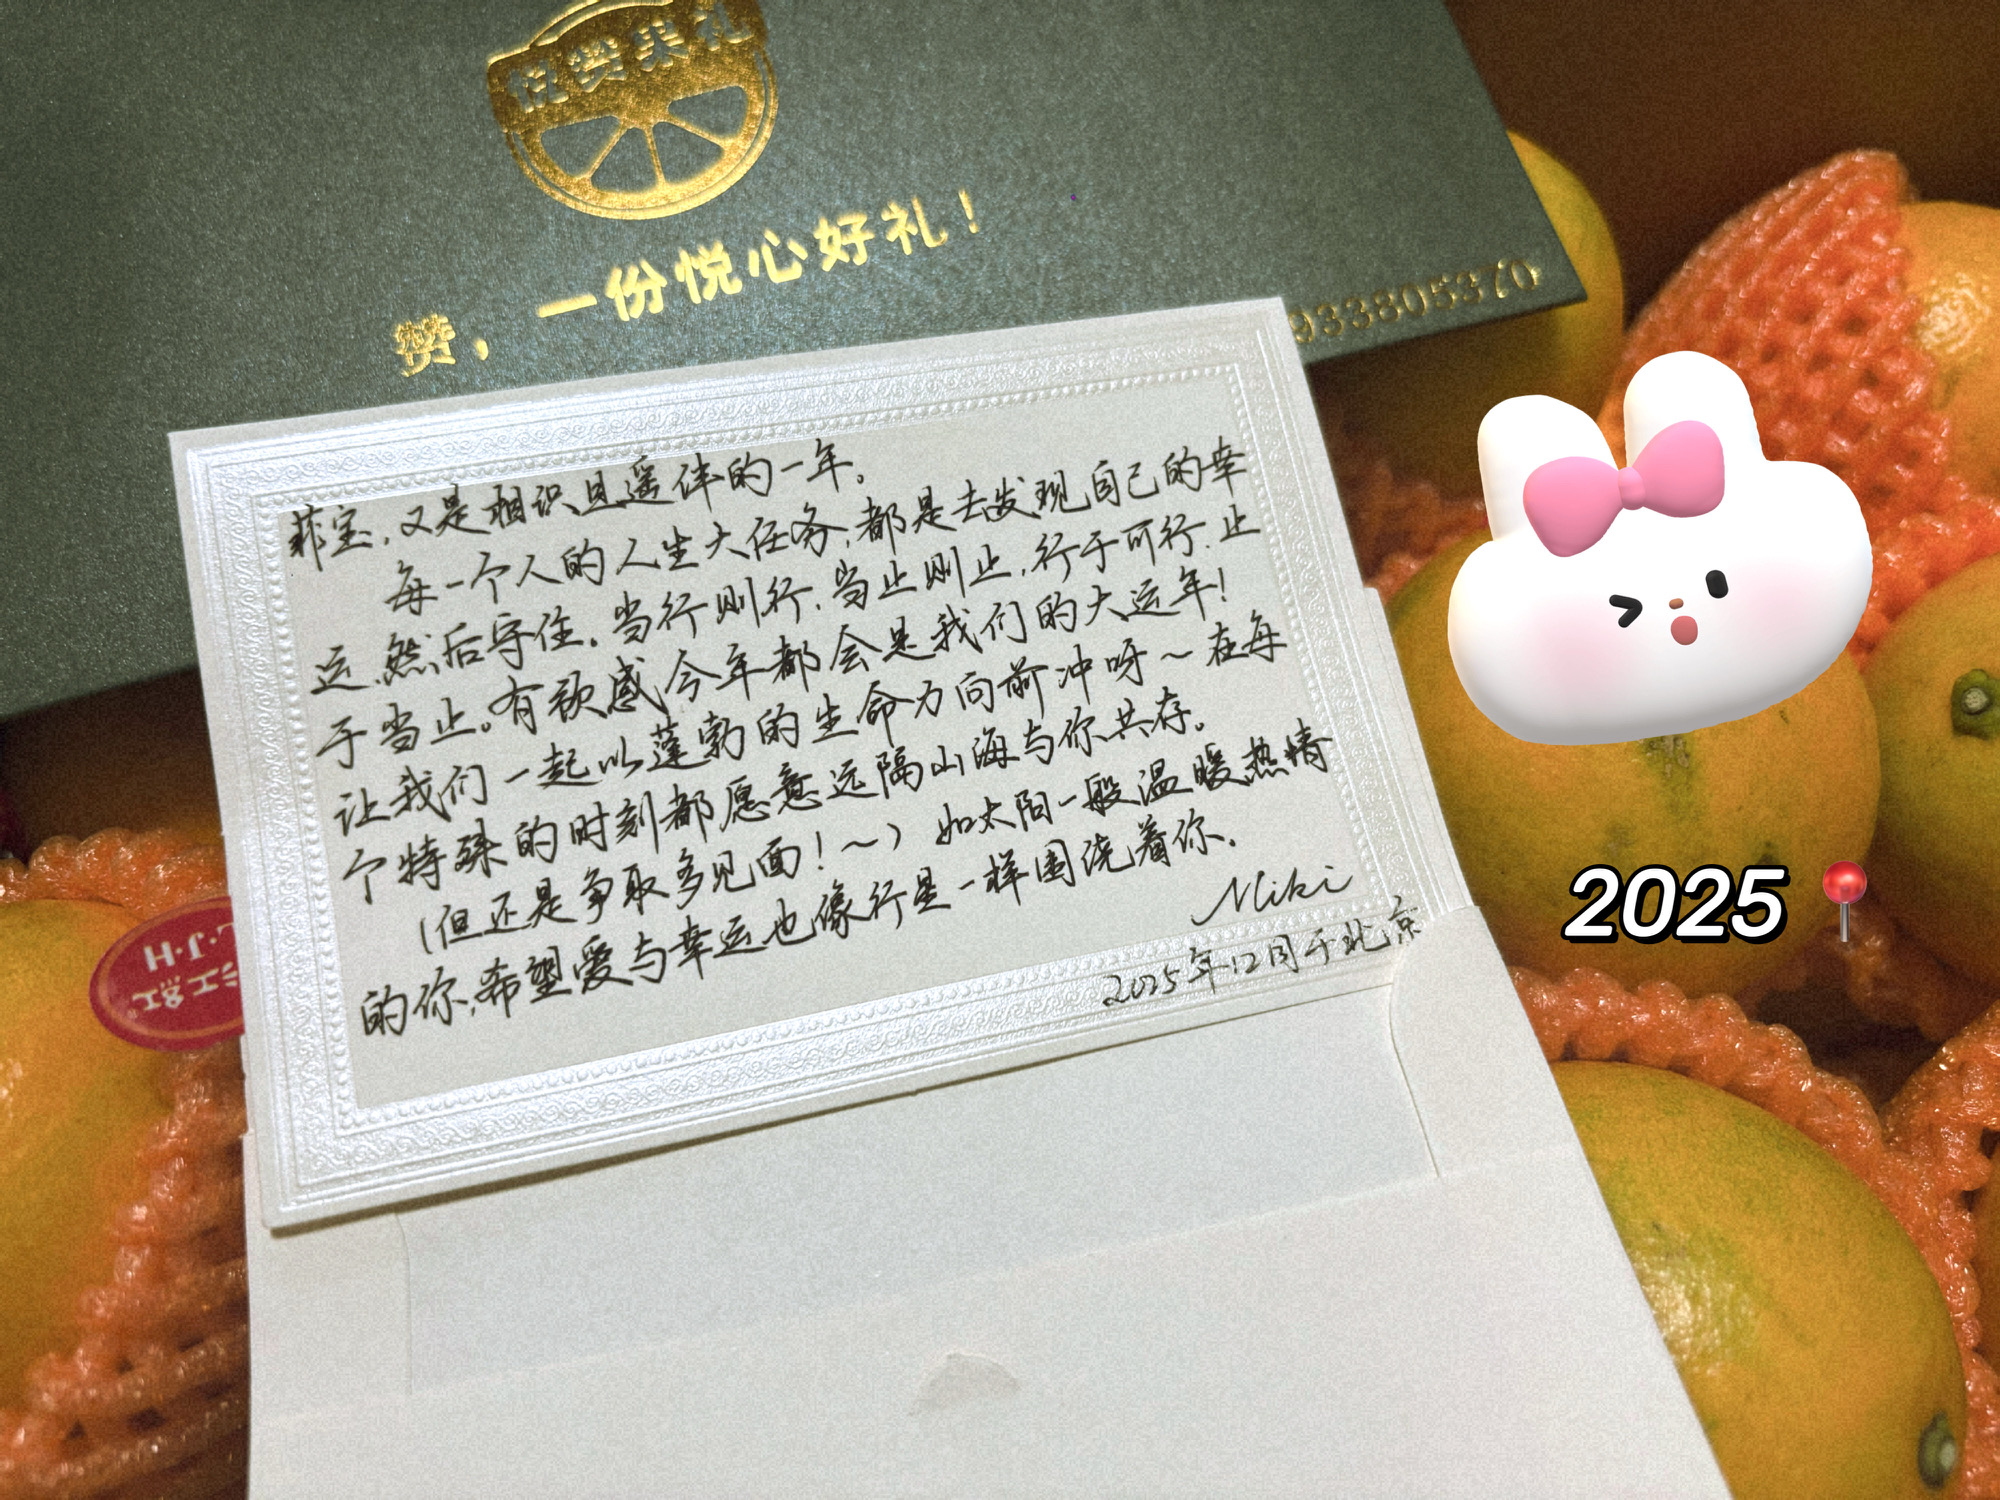 悦赞果礼
赞，一份悦心好礼！
933805370
菲宝，又是相识且遥伴的一年。
每一个人的人生大任务，都是去发现自己的幸
运，然后守住。当行则行，当止则止，行于可行，止
于当止。有预感今年都会是我们的大运年！
让我们一起以蓬勃的生命力向前冲呀～在每
个特殊的时刻都愿意远隔山海与你共存。
（但还是争取多见面！～）如太阳一般温暖热情
的你，希望爱与幸运也像行星一样围绕着你。
Miki
2025年12月于北京
江
L·J·H
2025